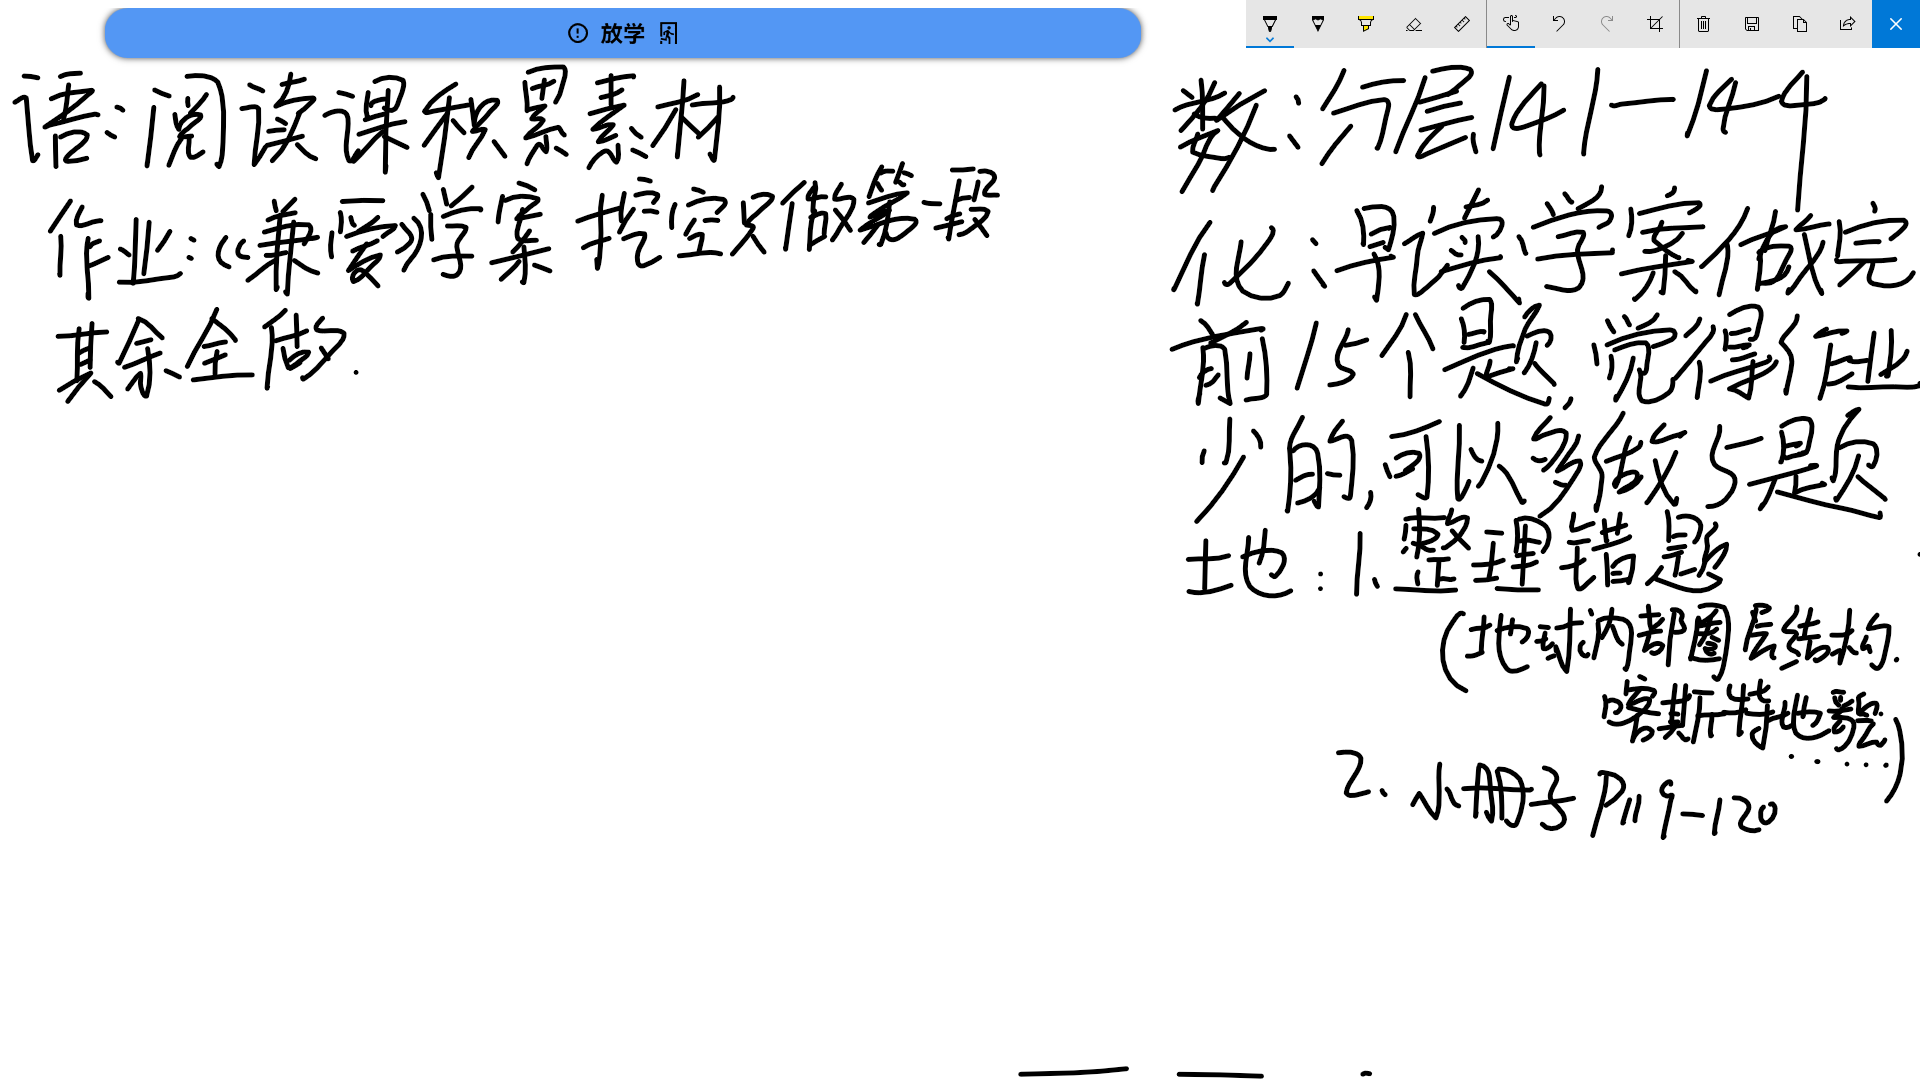 放学
语：阅读课积累素材
作业：《兼爱》学案 挖空只做第一段
其余全做.
数：分层141—144
化：早读学案做完
前15个题，觉得作业
少的，可以多做5题
地：1.整理错题
(地球内部圈层结构.
喀斯特地貌......)
2. 小册子P119-120